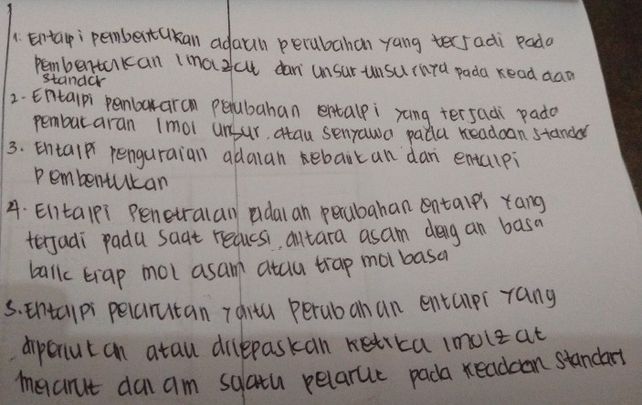 1. Entalpi pembentukan adalah perubahan yang terjadi pada
pembentukan 1 mol zat dari unsur-unsurnya pada keadaan
standar
2. Entalpi pembakaran perubahan entalpi yang terjadi pada
pembakaran 1 mol unsur atau senyawa pada keadaan standar
3. Entalpi penguraian adalah kebalikan dari entalpi
pembentukan
4. Entalpi Penetralan adalah perubahan entalpi yang
terjadi pada saat reaksi antara asam dengan basa
baik tiap mol asam atau tiap mol basa
5. Entalpi pelarutan yaitu perubahan entalpi yang
diperlukan atau dilepaskan ketika 1 mol zat
melarut dalam suatu pelarut pada keadaan standart